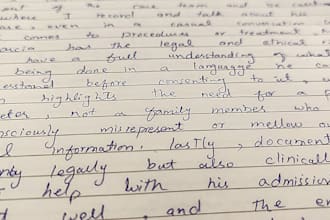 of his care team and we can't
where I record and talk about his
care, even in a casual conversation
comes to procedures or treatment,
has the legal and ethical
have a full understanding of what
being done in a language he can
before consenting to it,
highlights the need for a
, not a family member who
misrepresent or mellow ou
information. lastly, document
legally but also clinicall
help with his admission
well, and the en